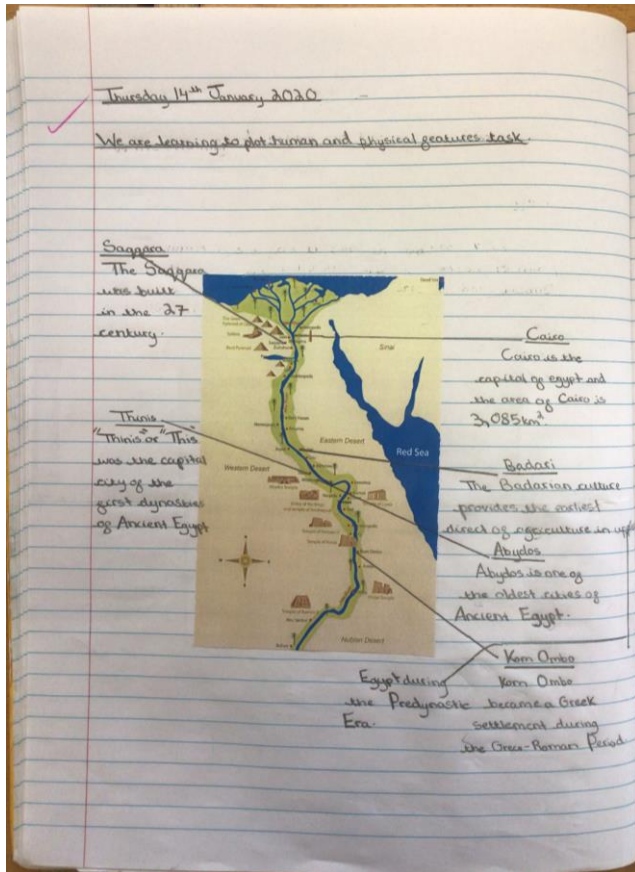 Thursday 14th January 2020
We are learning to plot human and physical features task.
Saqqara
The Saqqara
was built
in the 27
century.
Thinis
"Thinis" or "This"
was the capital
city of the
first dynasties
of Ancient Egypt
Sinai
Eastern Desert
Red Sea
Western Desert
Nubian Desert
Cairo
Cairo is the
capital of egypt and
the area of Cairo is
3,085km².
Badari
The Badarian culture
provides the earliest
direct of agriculture in upp
Abydos
Abydos is one of
the oldest cities of
Ancient Egypt.
Egypt during
the Predynastic
Era.
Kom Ombo
Kom Ombo
became a Greek
settlement during
the Greco-Roman Period